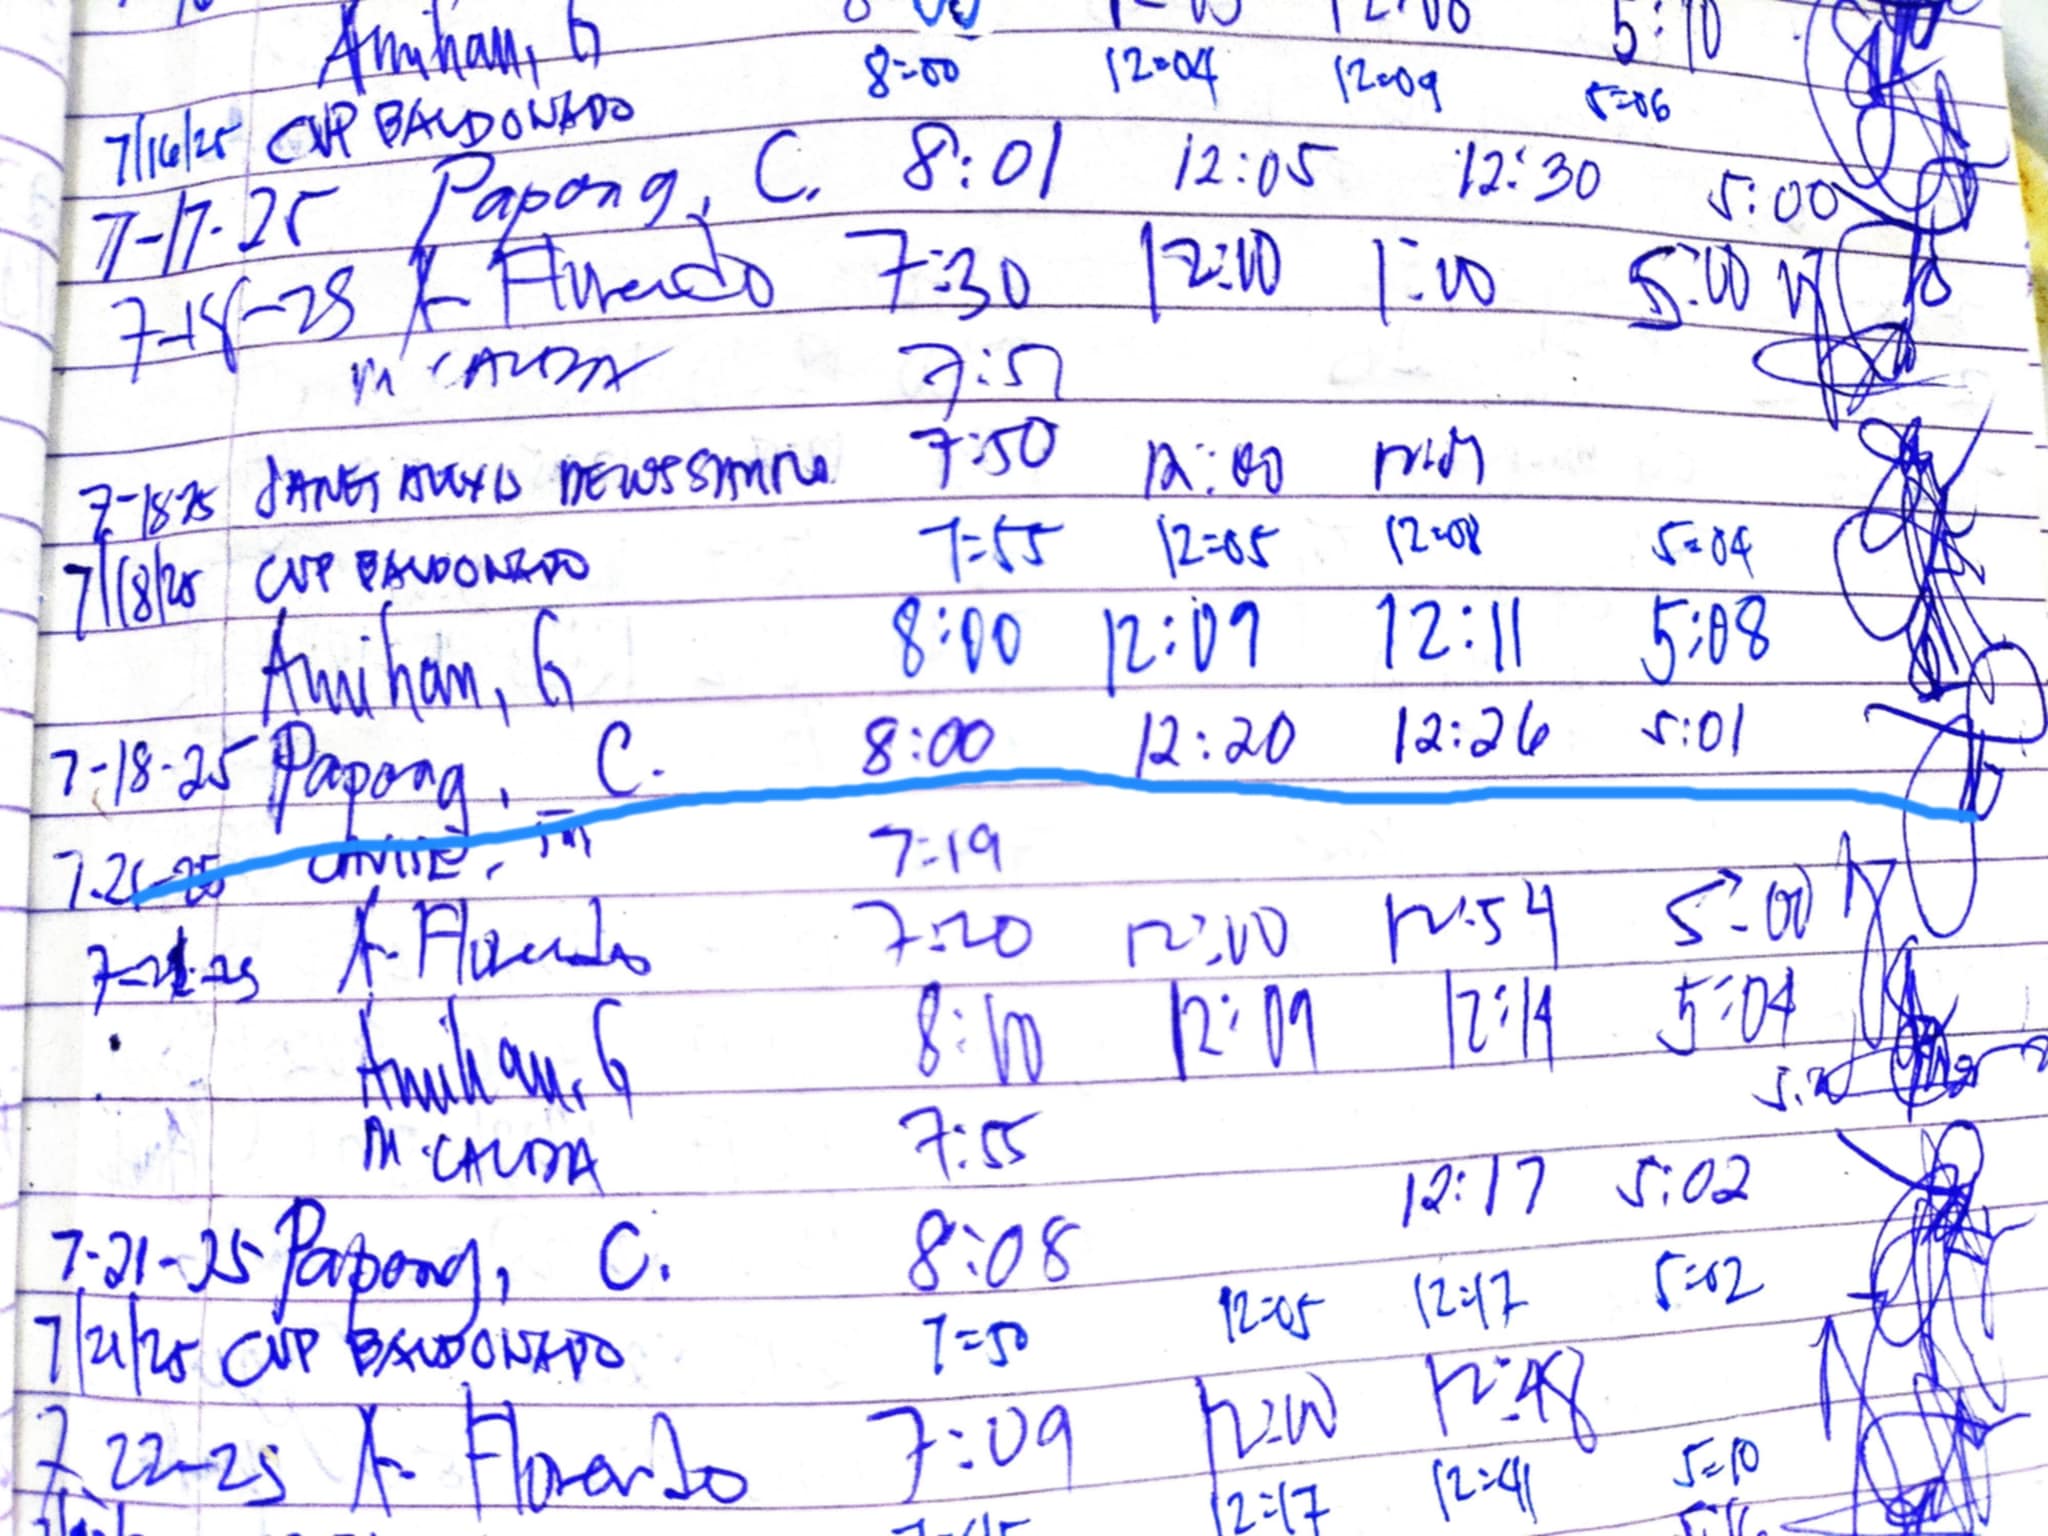 Amihan, G 8:00 12:00 5:10
7/16/25 CVP BALDONADO 8=00 12=04 12=09 5=06
7-17-25 Papong, C. 8:01 12:05 12:30 5:00
7-18-25 A. Florendo 7:30 12:00 1:00 5:00
M. CALIDA 7:51
7-18-25 JANET ALEXIS 7:50 12:00
7/18/25 CVP BALDONADO 7=55 12=05 12=08 5=04
Amihan, G 8:00 12:09 12:11 5:08
7-18-25 Papong, C. 8:00 12:20 12:26 5:01
7-21-25 7:19
7-21-25 A. Florendo 7:20 12:00 12:54 5:00
Amihan, G 8:00 12:09 12:14 5:04
M. CALIDA 7:55
7-21-25 Papong, C. 8:08 12:17 5:02
7/21/25 CVP BALDONADO 7=50 12=05 12=17 5=02
7-22-25 A. Florendo 7:09 12:00 12:48
12=17 12=41 5=10